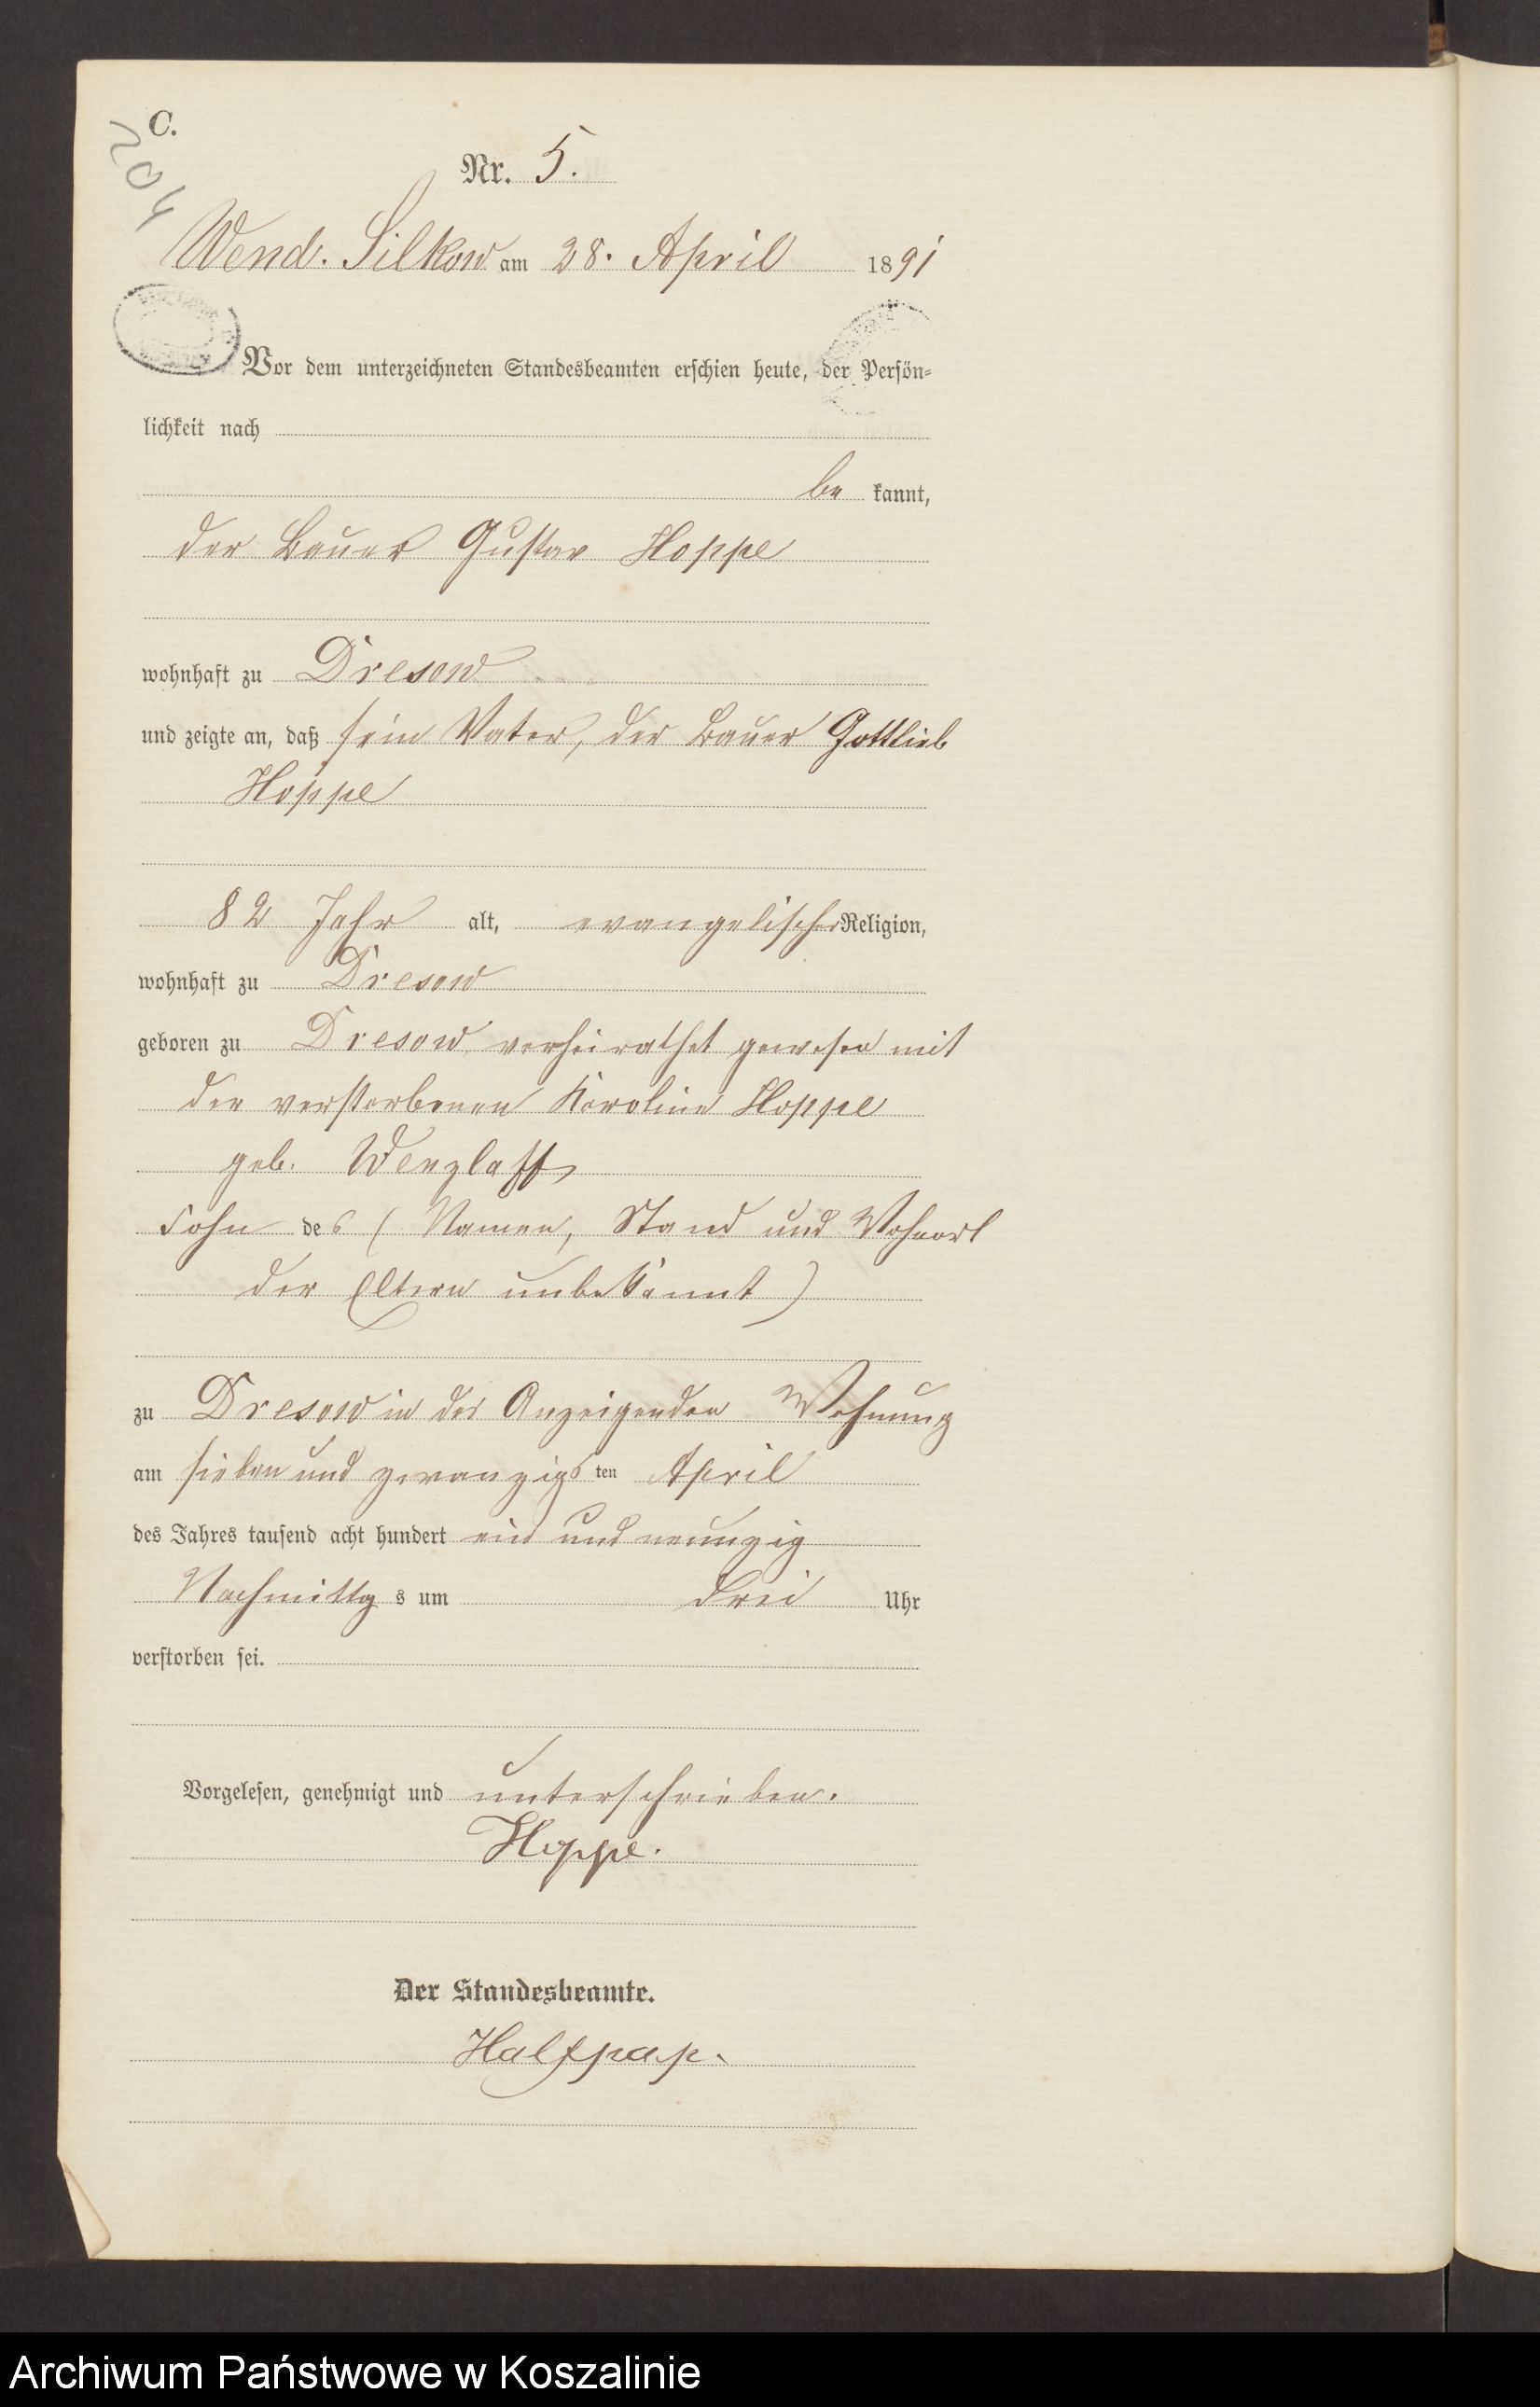 C.
204
Nr. 5.
Wend. Silkow am 28. April 1891
Vor dem unterzeichneten Standesbeamten erschien heute, der Persön-
lichkeit nach
be kannt,
der Bauer Gustav Hoppe
wohnhaft zu Dresow
und zeigte an, daß sein Vater, der Bauer Gottlieb
Hoppe
82 Jahr alt, evangelischer Religion,
wohnhaft zu Dresow
geboren zu Dresow, verheirathet gewesen mit
der verstorbenen Karoline Hoppe
geb. Wenzlaff,
Sohn des (Namen, Stand und Wohnort
der Eltern unbekannt)
zu Dresow in des Anzeigenden Wohnung
am sieben und zwanzigsten April
des Jahres tausend acht hundert ein und neunzig
Nachmittgs um drei Uhr
verstorben sei.
Vorgelesen, genehmigt und unterschrieben.
Hoppe.
Der Standesbeamte.
Halfpap.
Archiwum Państwowe w Koszalinie